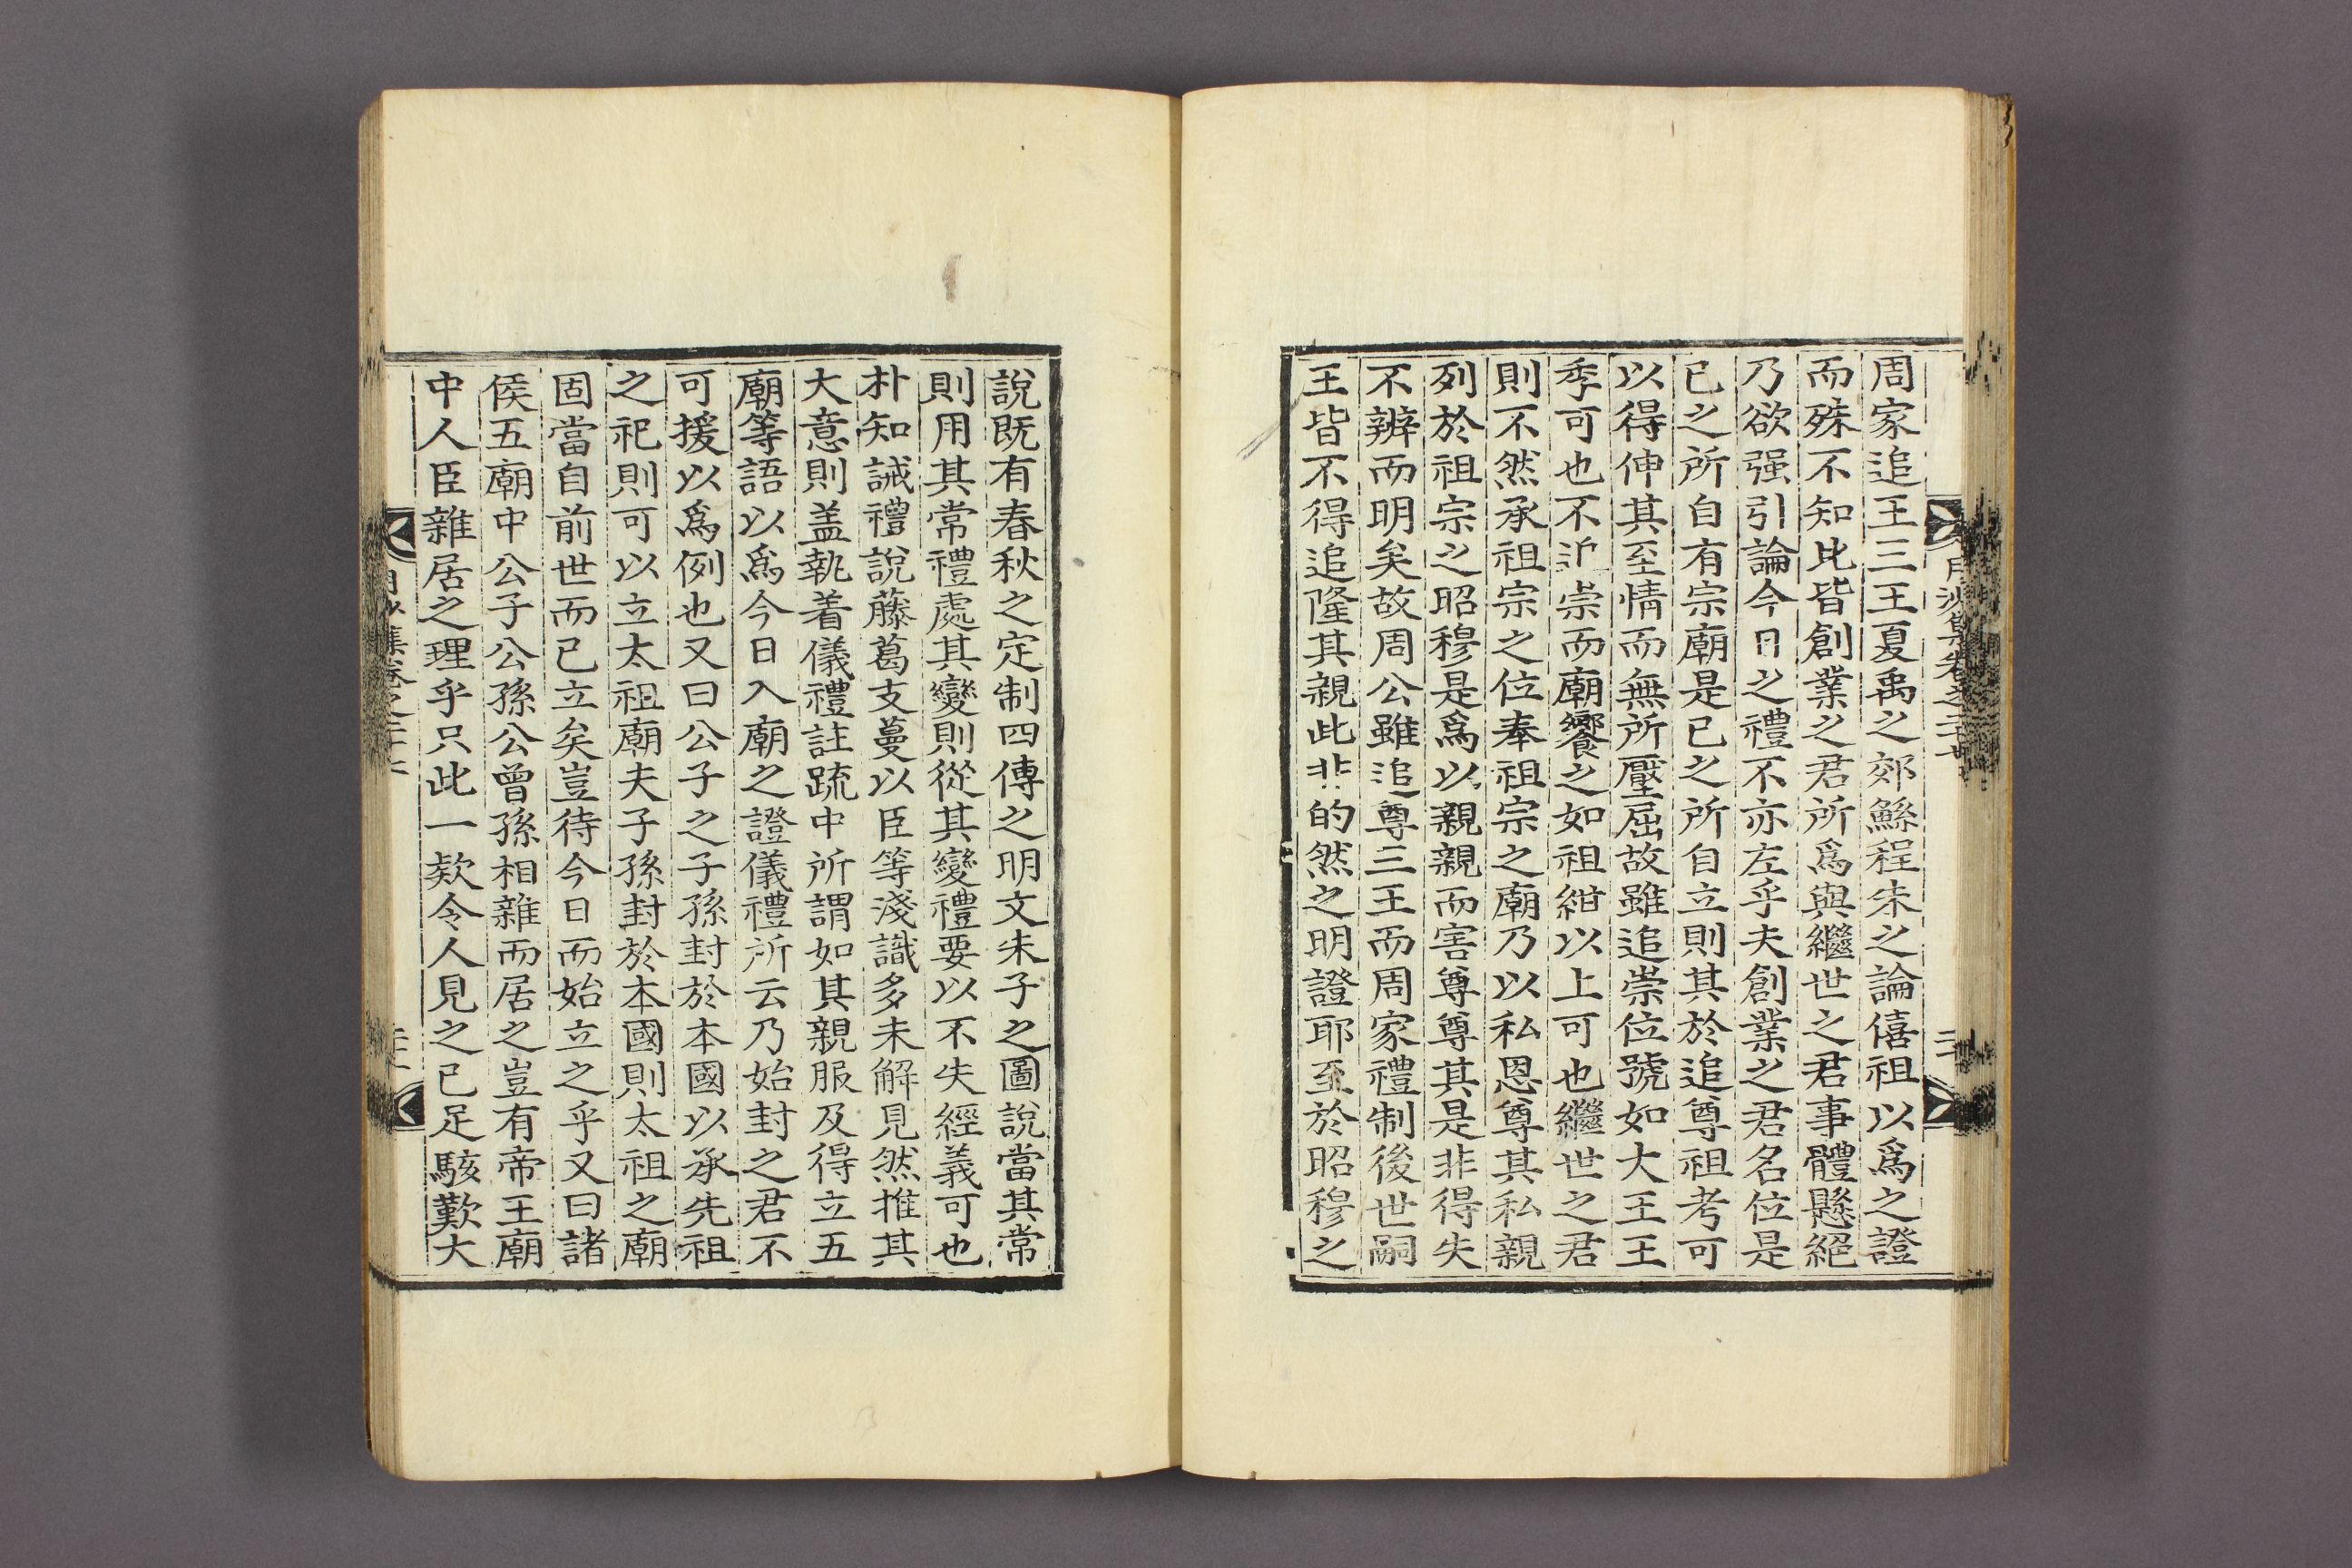 周家追王三王夏禹之郊鯀程朱之論僖祖以爲之證
而殊不知此皆創業之君所爲與繼世之君事體懸絕
乃欲强引論今日之禮不亦左乎夫創業之君名位是
已之所自有宗廟是已之所自立則其於追尊祖考可
以得伸其至情而無所壓屈故雖追崇位號如大王王
季可也不追崇而廟饗之如祖紺以上可也繼世之君
則不然承祖宗之位奉祖宗之廟乃以私恩尊其私親
列於祖宗之昭穆是爲以親親而害尊尊其是非得失
不辨而明矣故周公雖追尊三王而周家禮制後世嗣
王皆不得追隆其親此非的然之明證耶至於昭穆之
月沙集卷之二十
說既有春秋之定制四傳之明文朱子之圖說當其常
則用其常禮處其變則從其變禮要以不失經義可也
朴知誡禮說藤葛支蔓以臣等淺識多未解見然推其
大意則盖執着儀禮註疏中所謂如其親服及得立五
廟等語以爲今日入廟之證儀禮所云乃始封之君不
可援以爲例也又曰公子之子孫封於本國以承先祖
之祀則可以立太祖廟夫子孫封於本國則太祖之廟
固當自前世而已立矣豈待今日而始立之乎又曰諸
侯五廟中公子公孫公曾孫相雜而居之豈有帝王廟
中人臣雜居之理乎只此一欵令人見之已足駭歎大
集卷之二十